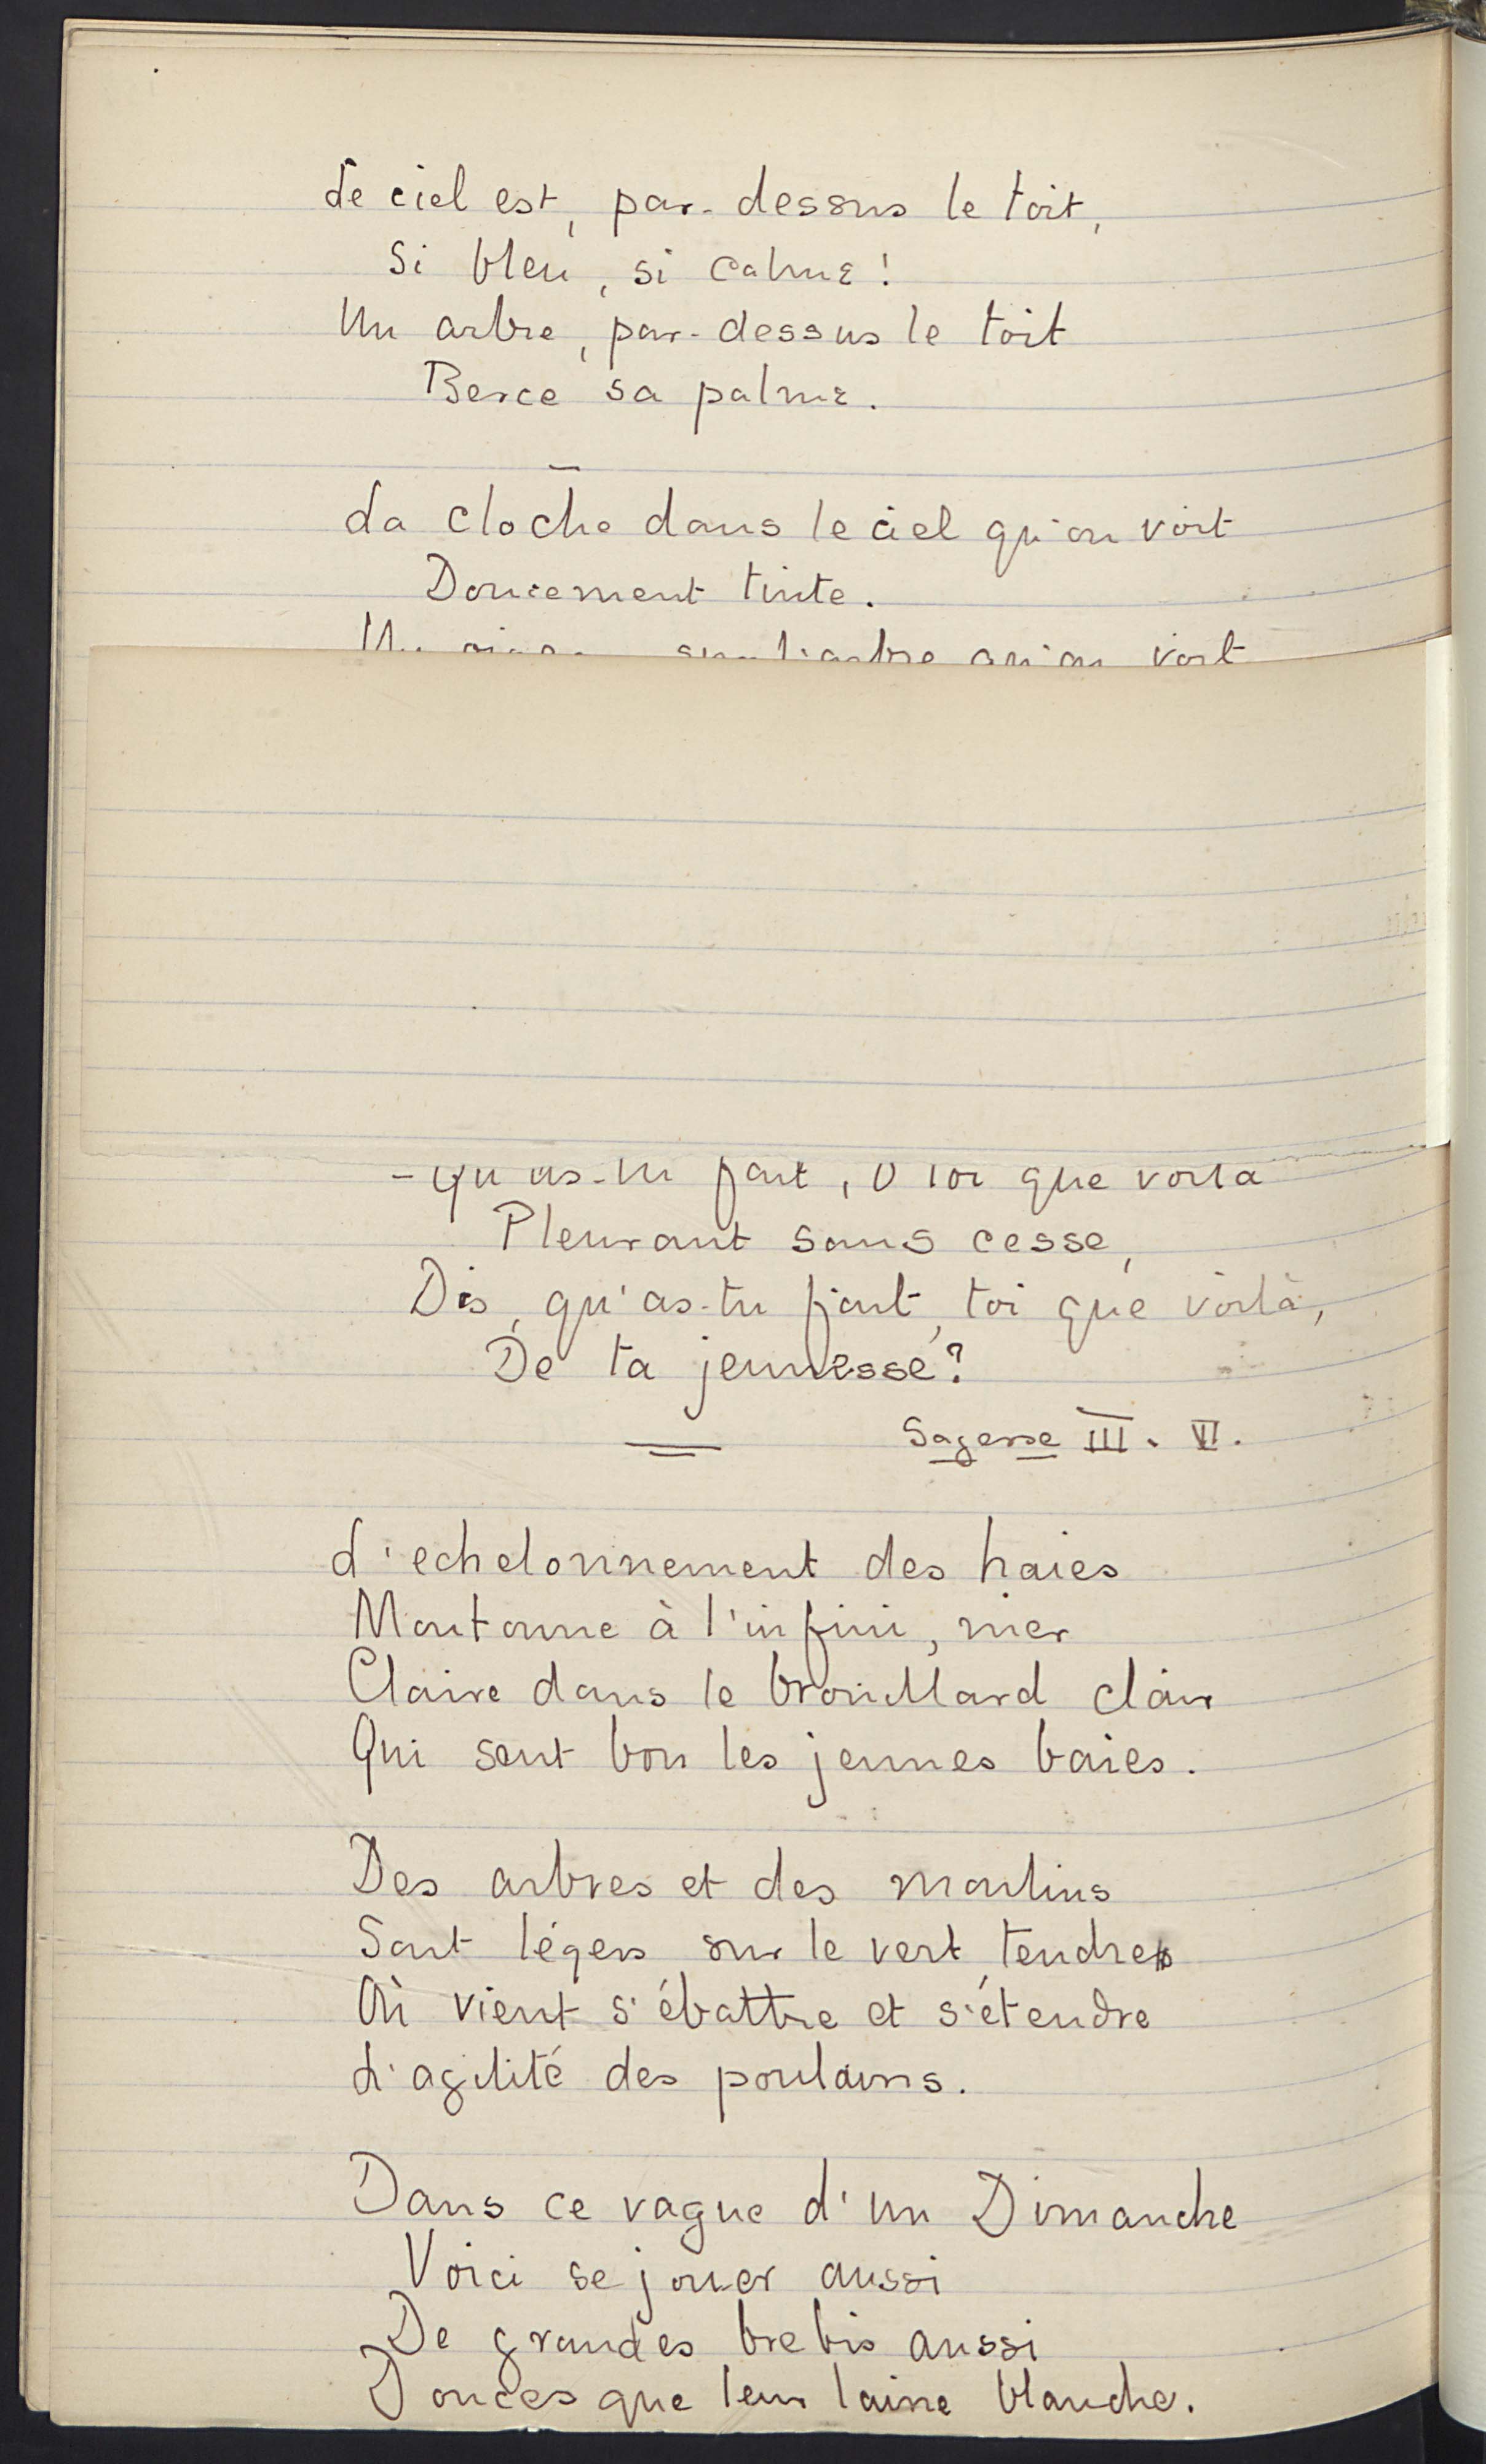 Le ciel est, par-dessus le toit,
Si bleu, si calme!
Un arbre, par-dessus le toit
Berce sa palme.
La cloche dans le ciel qu'on voit
Doucement tinte.
Un sur l'arbre qu'on voit
- Qu'as-tu fait, ô toi que voilà
Pleurant sans cesse,
Dis, qu'as-tu fait, toi que voilà,
De ta jeunesse?
Sagesse III. VI.
L'echelonnement des haies
Moutonne à l'infini, mer
Claire dans le brouillard clair
Qui sent bon les jeunes baies.
Des arbres et des moulins
Sont légers sur le vert tendre
Où vient s'ébattre et s'étendre
L'agilité des poulains.
Dans ce vague d'un Dimanche
Voici se jouer aussi
De grandes brebis aussi
Douces que leur laine blanche.